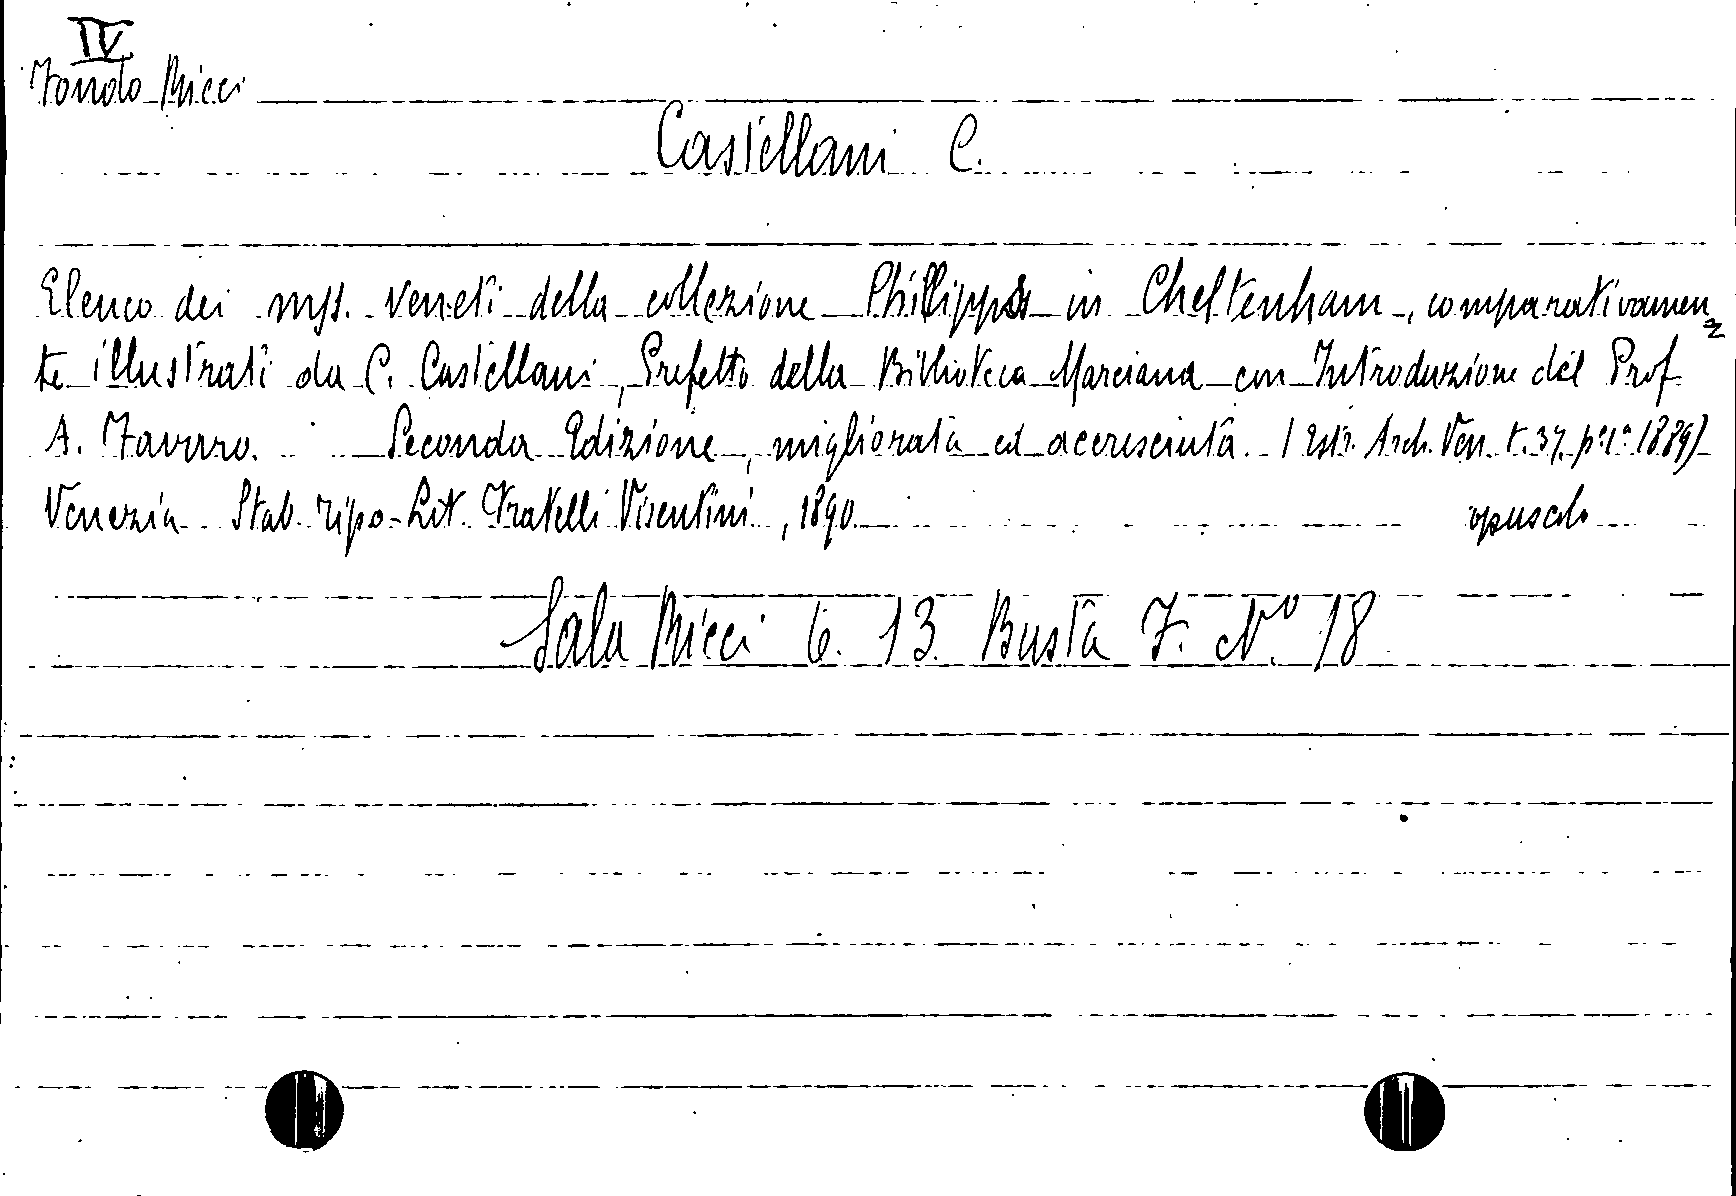 IV
Fondo Ricci
Castellani C.
Elenco dei mss. veneti della collezione Phillipps in Cheltenham, comparativamen=
te illustrati da C. Castellani, Prefetto della Biblioteca Marciana con Introduzione del Prof
A. Favaro. Seconda Edizione, migliorata ed accresciuta. (Estr. Arch. Ven. t. 37, p.e 1.a 1889)
Venezia Stab. Tipo-Lit. Fratelli Visentini, 1890. opuscolo
Sala Ricci 6. 13 Busta F. No. 18